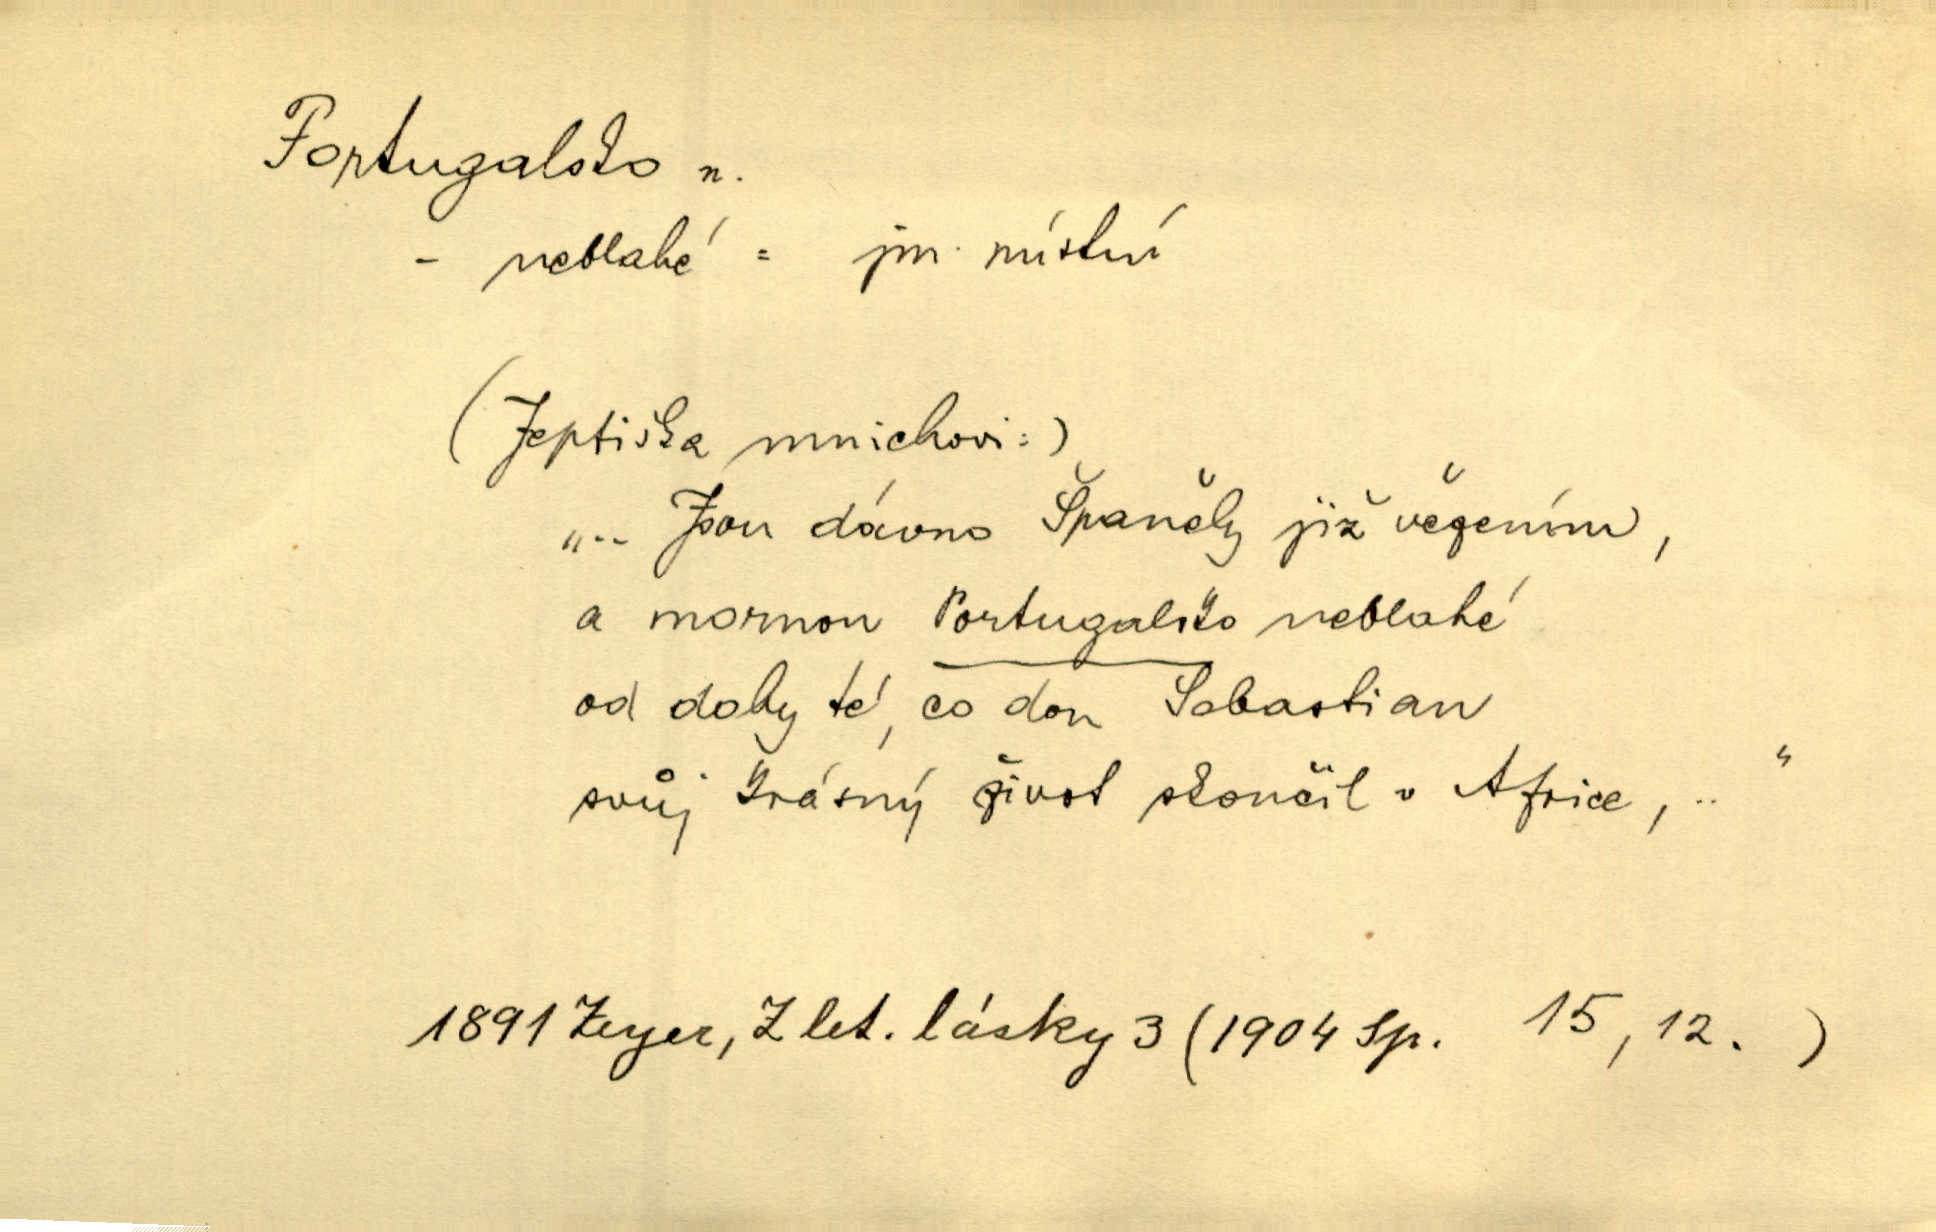 Portugalsko n.
- neblahé = jm. místní
(Jeptiška mnichovi:)
„.. Jsou dávno Španěly již vězením,
a mornou Portugalsko neblahé
od doby té, co don Sebastian
svůj krásný život skončil v Africe, .. "
1891 Zeyer, Z let. lásky 3 (1904 Sp. 15, 12. )